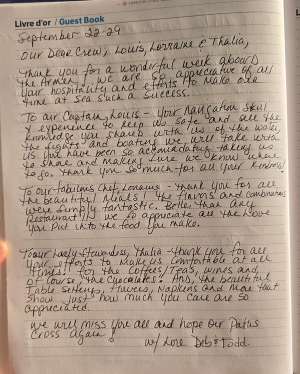 Livre d'or / Guest Book
September 22-29
Our Dear Crew, Louis, Lorraine & Thalia,
Thank you for a wonderful week aboard
the . We are so appreciative of all
your hospitality and efforts to make our
time at sea such a success.
To our Captain, Louis - your navigation skill
& experience to keep us safe and all the
knowledge you shared with us of the
the sights and boating we will take with
us. You have been so accommodating taking us
to shore and making sure we know where
to go. Thank you so much for all your kindness!
To our fabulous chef, Lorraine - thank you for all
the beautiful meals! The flavors and combinations
were simply fantastic. Better than any
restaurant! We so appreciate all the love
you put into the food you make.
To our lovely stewardess, Thalia - thank you for all
your efforts to make us comfortable at all
times! For the coffees/teas, wines and
of course, the chocolates! And, the beautiful
table settings, flowers, napkins and more that
show just how much you care are so
appreciated.
We will miss you all and hope our paths
cross again!
w/ love Deb & Todd